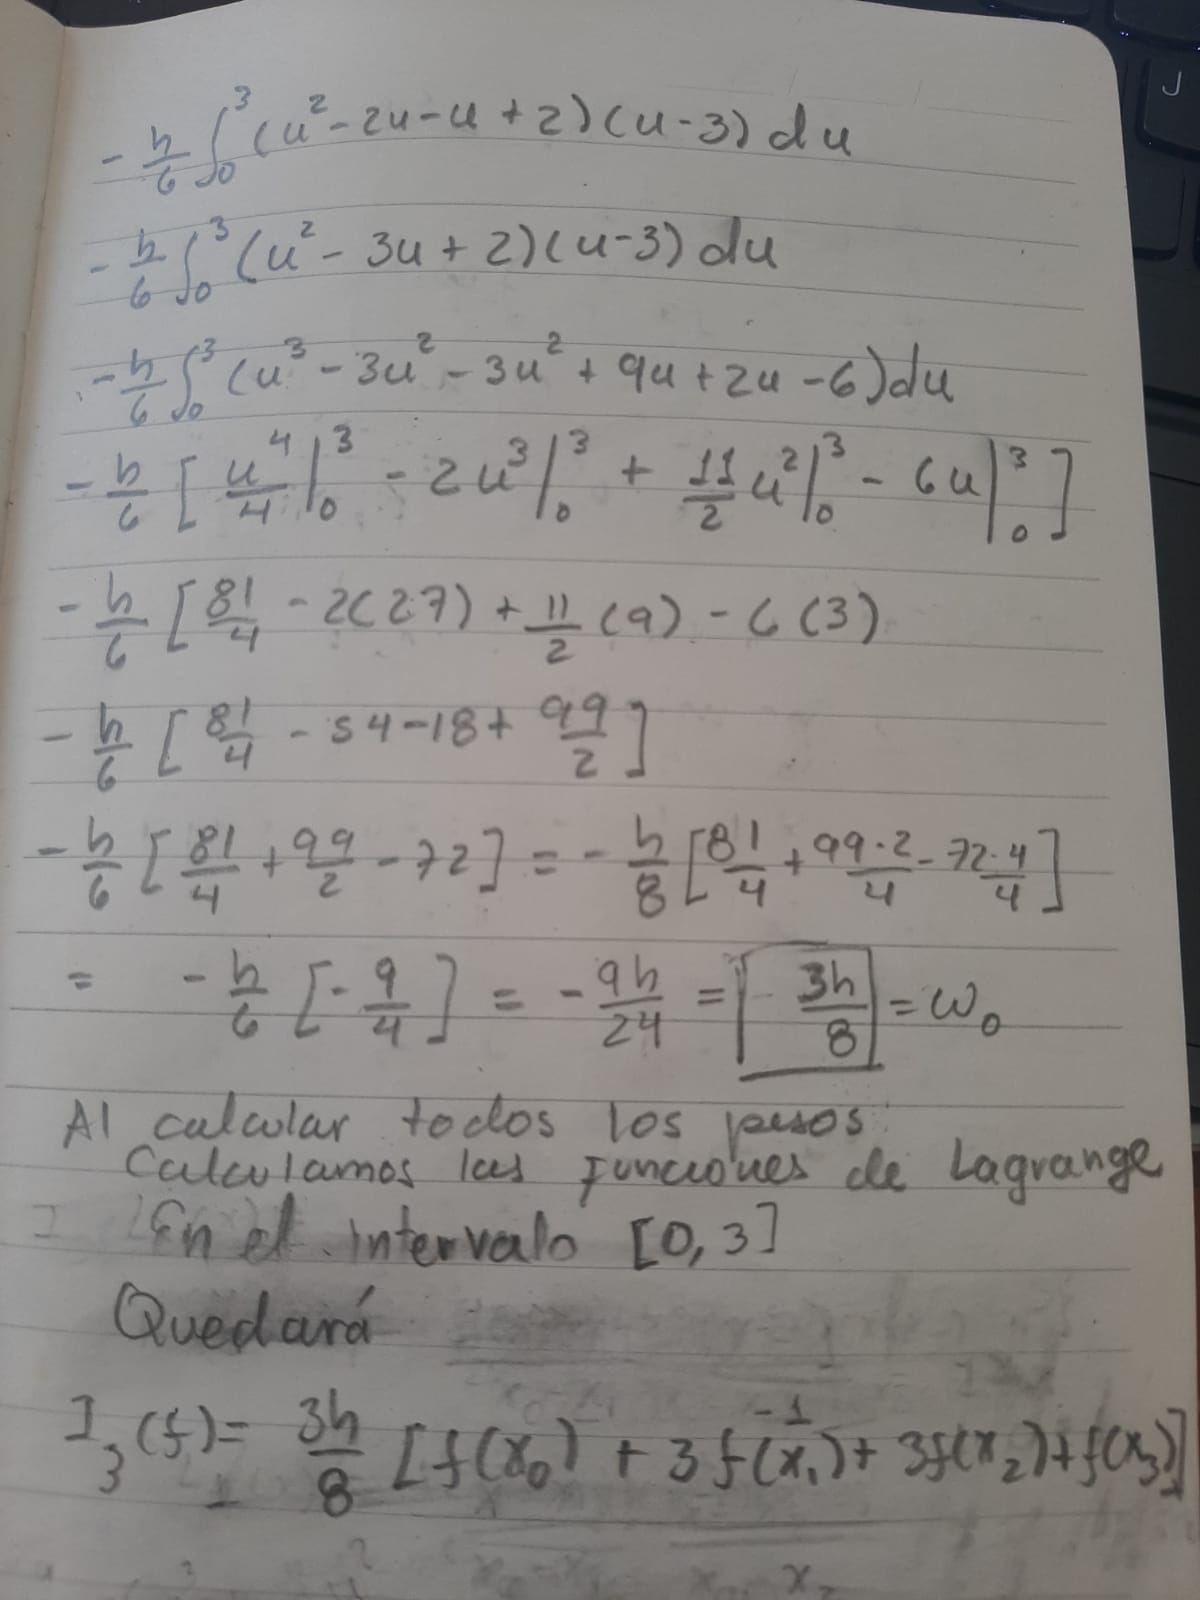 -h/6 ∫₀³ (u²-2u-u+2)(u-3) du
-h/6 ∫₀³ (u²-3u+2)(u-3) du
-h/6 ∫₀³ (u³-3u²-3u²+9u+2u-6)du
-h/6 [u⁴/4|₀³ - 2u³|₀³ + 11/2 u²|₀³ - 6u|₀³]
-h/6 [81/4 - 2(27) + 11/2 (9) - 6(3)
-h/6 [81/4 - 54-18+ 99/2]
-h/6 [81/4 + 99/2 - 72] = -h/8 [81/4 + 99·2/4 - 72·4/4]
= -h/6 [-9/4] = -9h/24 = -3h/8 = ω₀
Al calcular todos los pesos.
Calculamos las funciones de Lagrange
En el intervalo [0,3]
Quedará
I₃(f)= 3h/8 [f(x₀) + 3f(x₁)+ 3f(x₂)+f(x₃)]